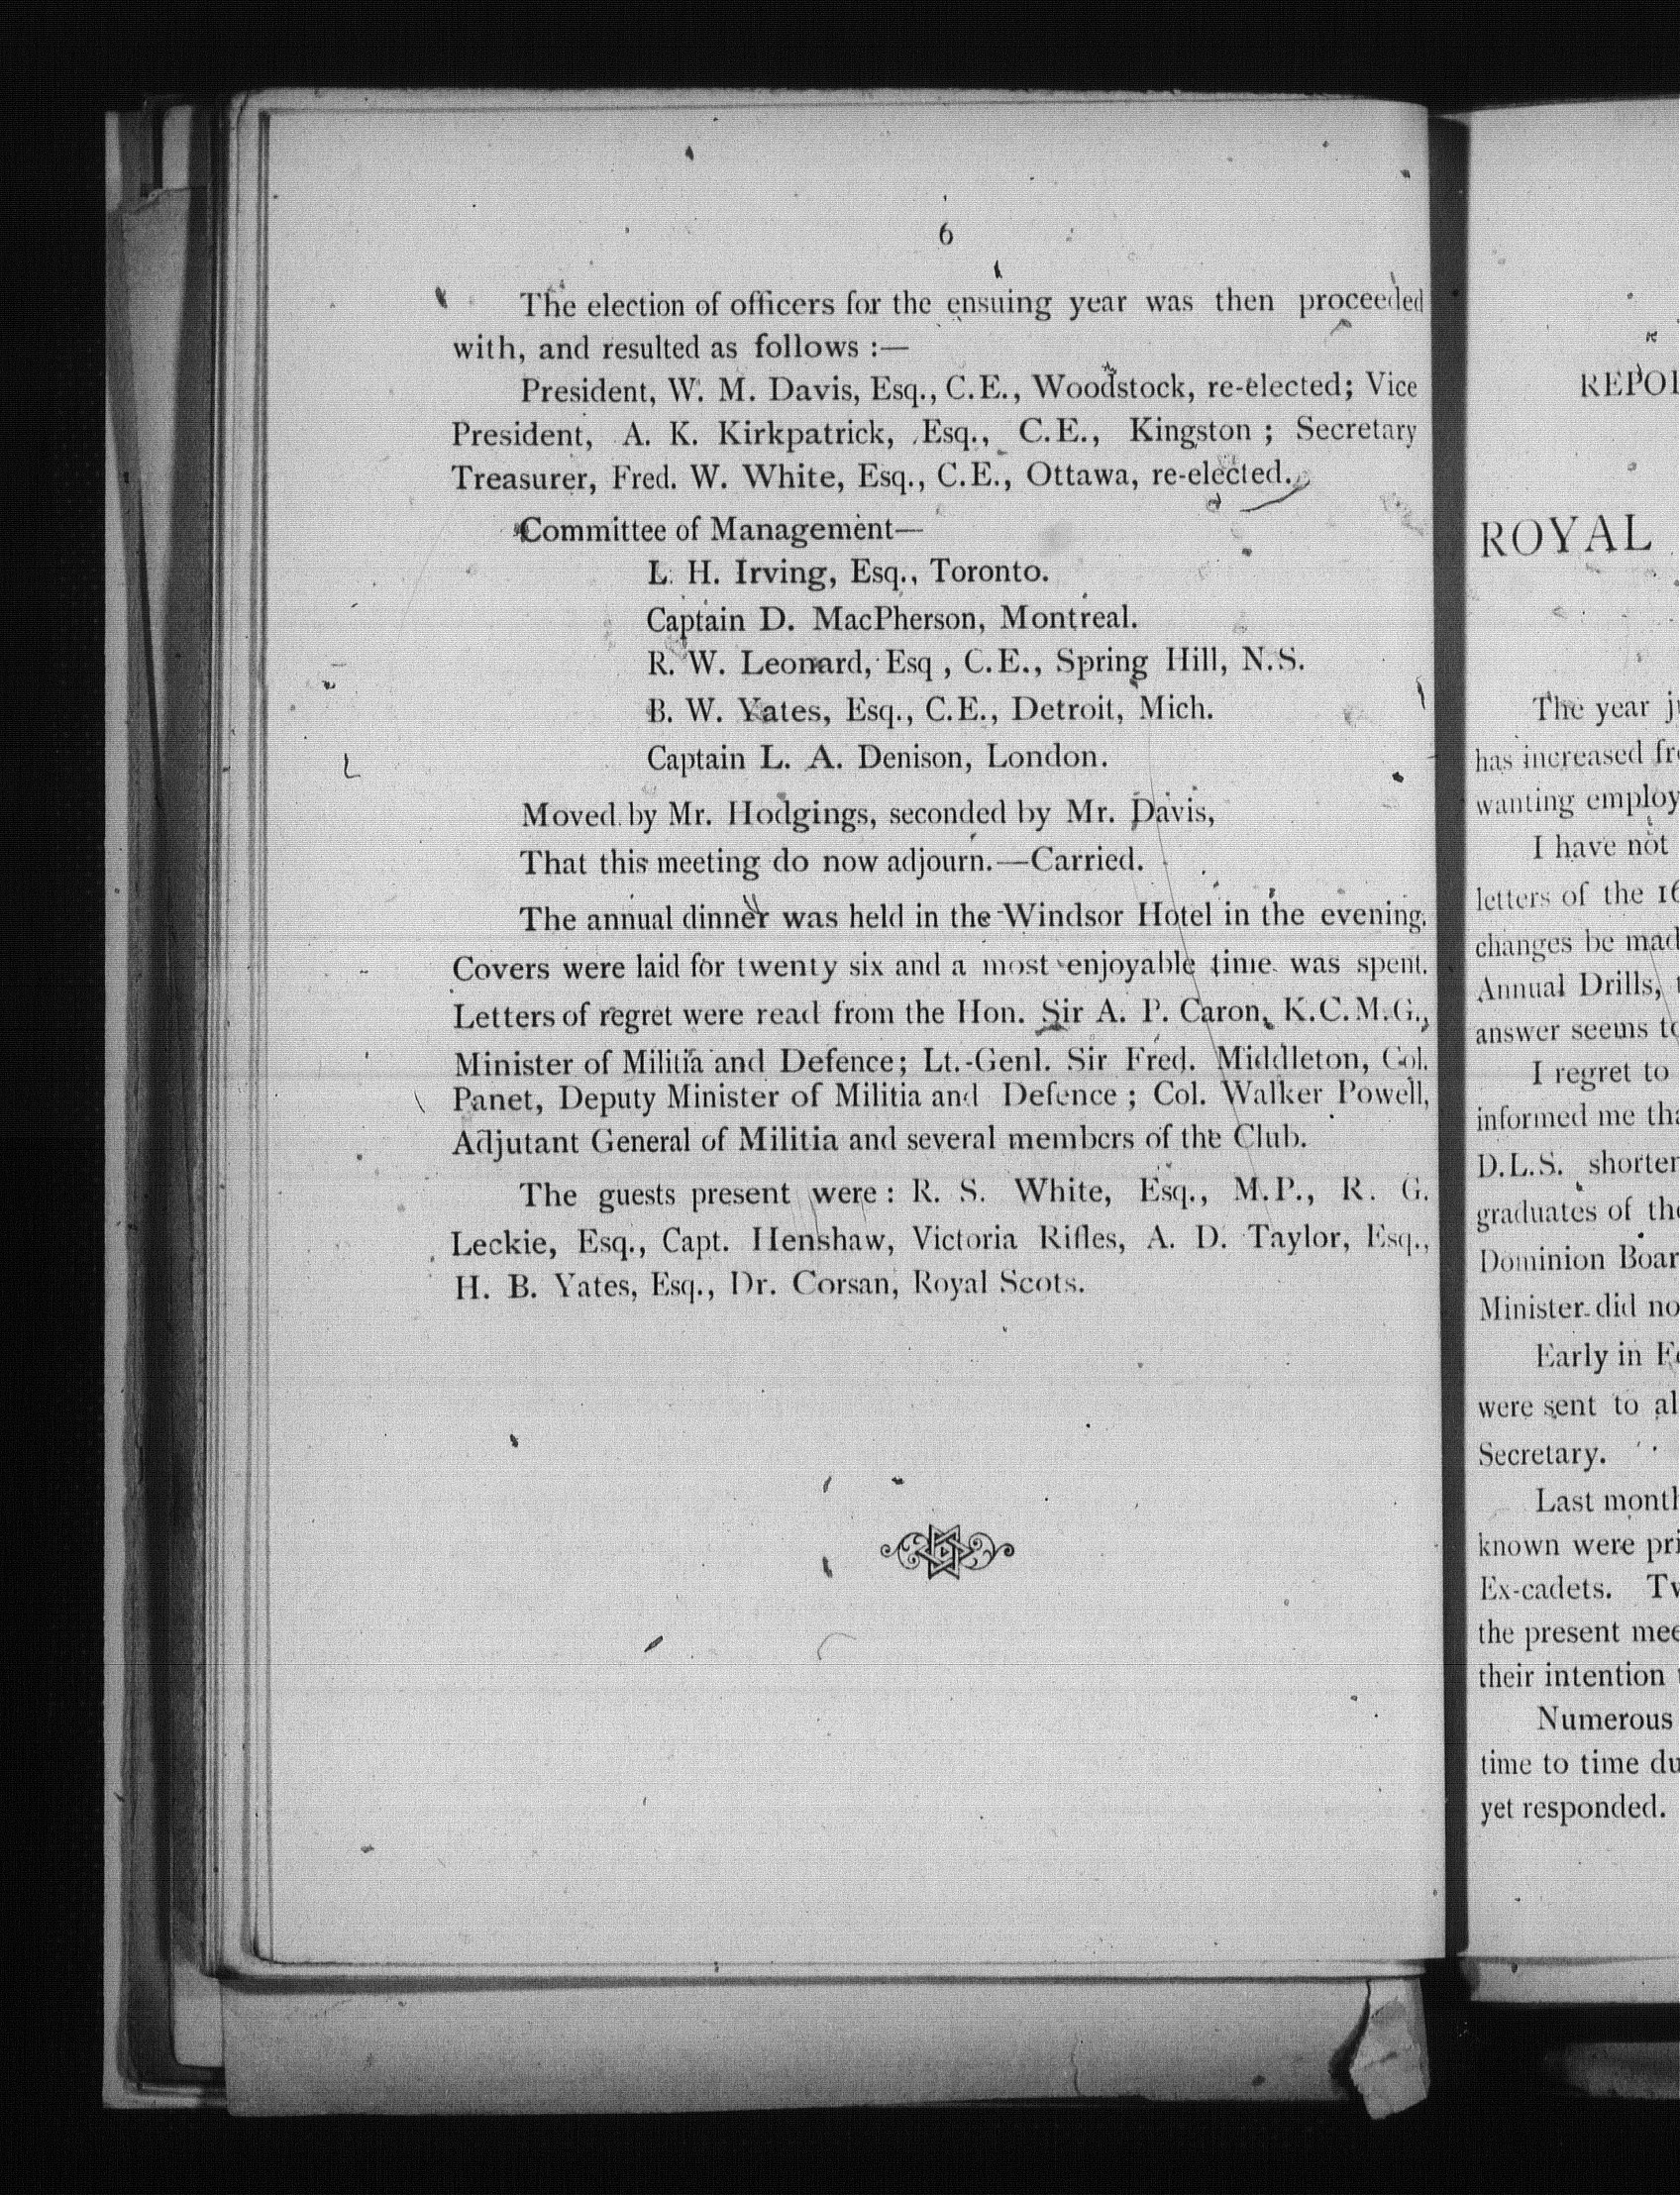 6
The election of officers for the ensuing year was then proceeded
with, and resulted as follows :—
President, W. M. Davis, Esq., C.E., Woodstock, re-elected; Vice
President, A. K. Kirkpatrick, Esq., C.E., Kingston ; Secretary
Treasurer, Fred. W. White, Esq., C.E., Ottawa, re-elected.
Committee of Management—
L. H. Irving, Esq., Toronto.
Captain D. MacPherson, Montreal.
R. W. Leonard, Esq , C.E., Spring Hill, N.S.
B. W. Yates, Esq., C.E., Detroit, Mich.
Captain L. A. Denison, London.
Moved by Mr. Hodgings, seconded by Mr. Davis,
That this meeting do now adjourn.—Carried.
The annual dinner was held in the Windsor Hotel in the evening.
Covers were laid for twenty six and a most enjoyable time was spent.
Letters of regret were read from the Hon. Sir A. P. Caron, K.C.M.G.,
Minister of Militia and Defence; Lt.-Genl. Sir Fred. Middleton, Col.
Panet, Deputy Minister of Militia and Defence ; Col. Walker Powell,
Adjutant General of Militia and several members of the Club.
The guests present were : R. S. White, Esq., M.P., R. G.
Leckie, Esq., Capt. Henshaw, Victoria Rifles, A. D. Taylor, Esq.,
H. B. Yates, Esq., Dr. Corsan, Royal Scots.
ROYAL
The year
has increased
wanting
I have not
letters of the
changes be
Annual Drills,
answer seems
I regret to
informed me
D.L.S. shorter
graduates of
Dominion
Minister did
Early in
were sent to
Secretary.
Last
known were
Ex-cadets.
the present
their intention
Numerous
time to time
yet responded.